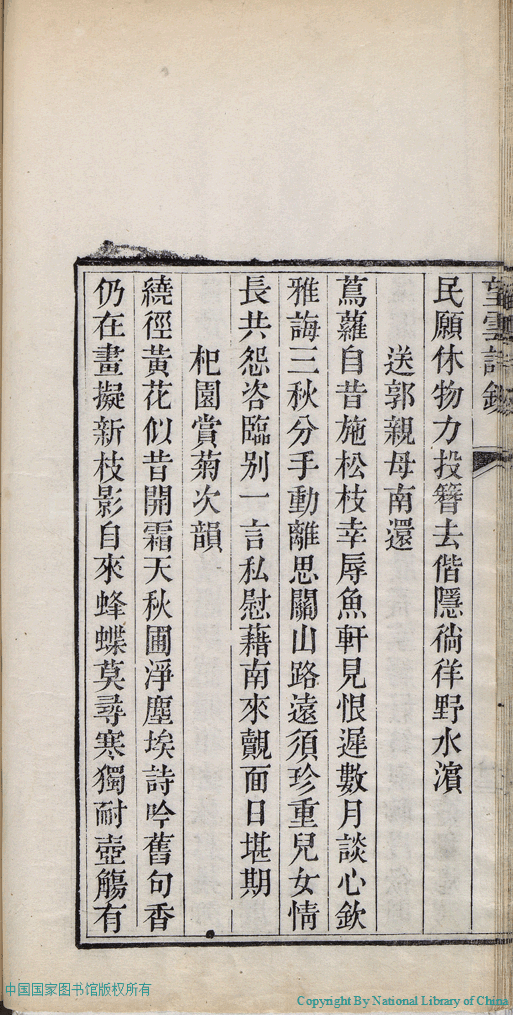 望雲詩鈔
民願休物力投簪去偕隱徜徉野水濱
送郭親母南還
蔦蘿自昔施松枝幸辱魚軒見恨遲數月談心欽
雅誨三秋分手動離思關山路遠須珍重兒女情
長共怨咨臨别一言私慰藉南來覿面日堪期
杞園賞菊次韻
繞徑黃花似昔開霜天秋圃淨塵埃詩吟舊句香
仍在畫擬新枝影自來蜂蝶莫尋寒獨耐壺觴有
中国国家图书馆版权所有
Copyright By National Library of China